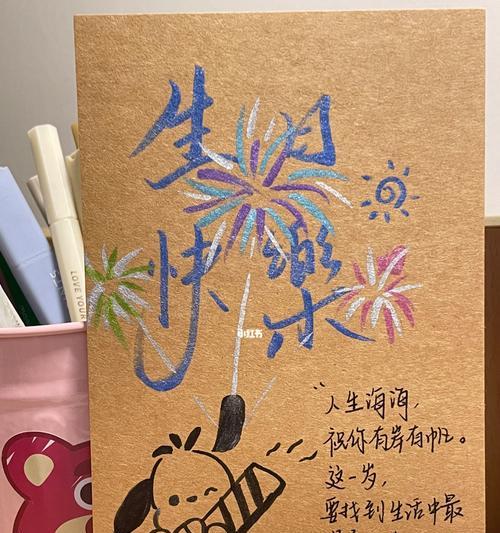 生日
快樂
LOVE YOUR
小红书
“人生海海,
祝你有岸有帆。
这一岁,
要找到生活中最